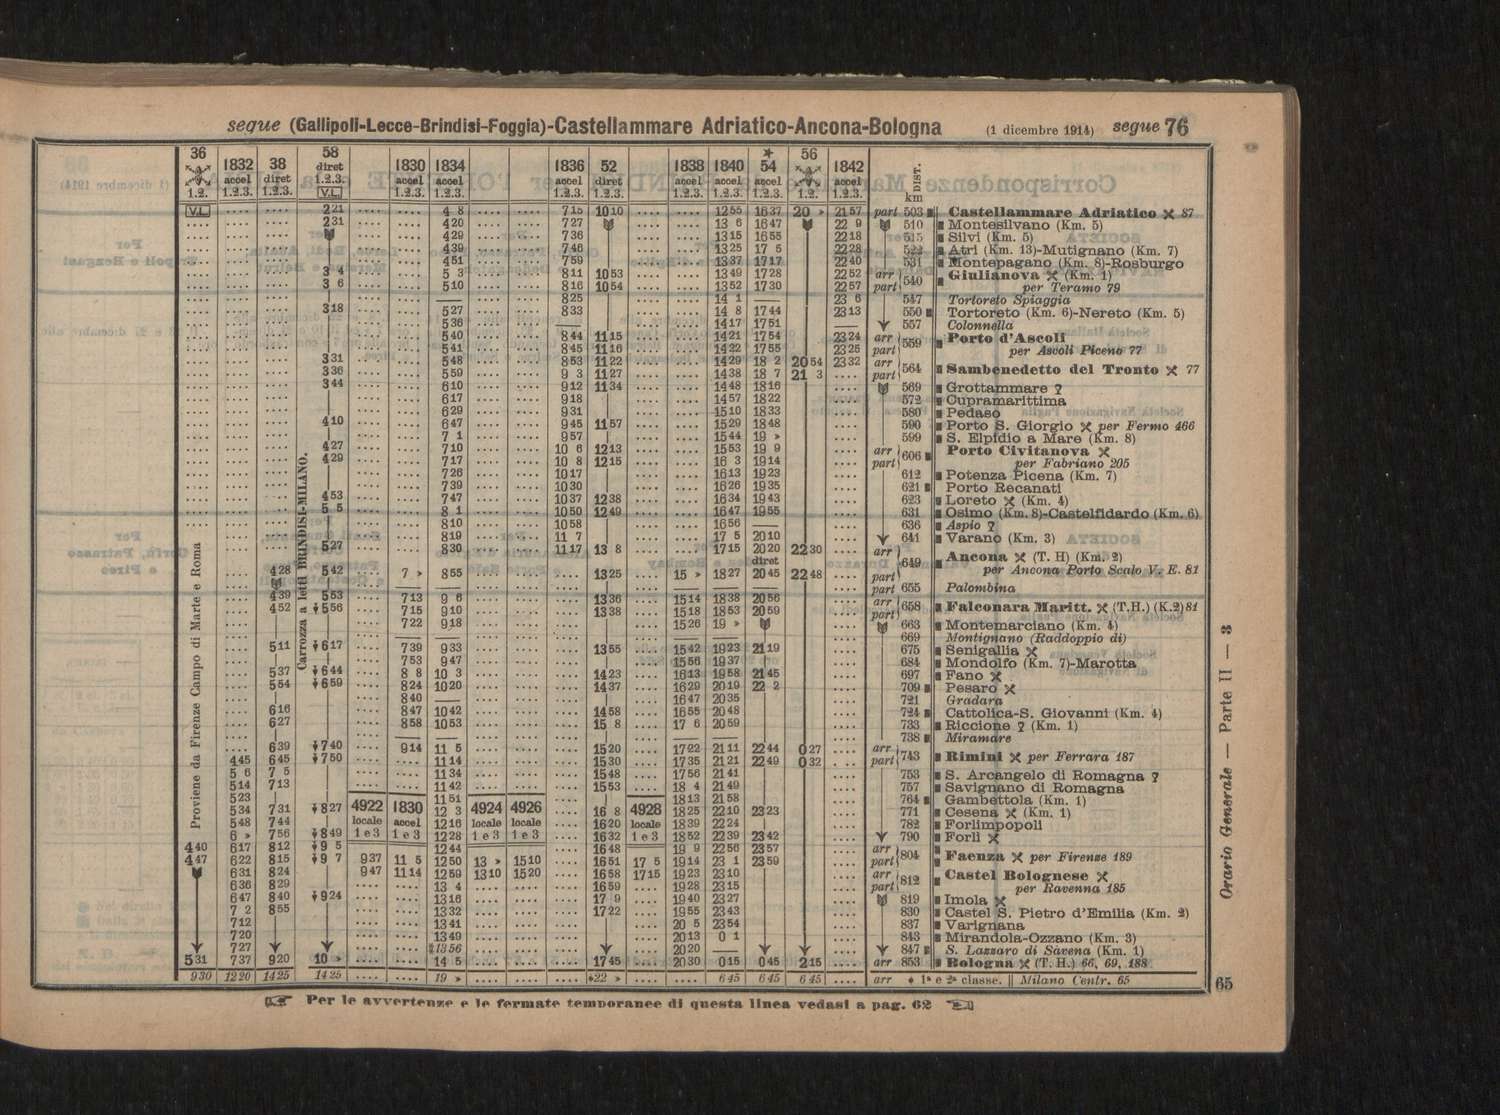 segue (Gallipoli-Lecce-Brindisi-Foggia)-Castellammare Adriatico-Ancona-Bologna (1 dicembre 1914) segue 76
36 1832 38 58 1830 1834 1836 52 1838 1840 54 56 1842
accel diret diret accel accel accel diret accel accel accel
1.2. 1.2.3. 1.2.3. 1.2.3. 1.2.3. 1.2.3. 1.2.3. 1.2.3. 1.2.3. 1.2.3. 1.2.3. 1.2. 1.2.3. km DIST.
V.L. 2 21 4 8 7 15 10 10 12 55 16 37 20 » 21 57 part 503 Castellammare Adriatico 87
2 31 4 20 7 27 13 6 16 47 22 9 510 Montesilvano (Km. 5)
4 29 7 36 13 15 16 55 22 18 515 Silvi (Km. 5)
4 39 7 46 13 25 17 5 22 28 522 Atri (Km. 13)-Mutignano (Km. 7)
4 51 7 59 13 37 17 17 22 40 531 Montepagano (Km. 8)-Rosburgo
3 4 5 3 8 11 10 53 13 49 17 28 22 52 arr 540 Giulianova (Km. 1)
3 6 5 10 8 16 10 54 13 52 17 30 22 57 part per Teramo 79
8 25 14 1 23 6 547 Tortoreto Spiaggia
3 18 5 27 8 33 14 8 17 44 23 13 550 Tortoreto (Km. 6)-Nereto (Km. 5)
5 36 14 17 17 51 557 Colonnella
5 40 8 44 11 15 14 21 17 54 23 24 arr 559 Porto d'Ascoli
5 41 8 45 11 16 14 22 17 55 23 25 part per Ascoli Piceno 77
3 31 5 48 8 53 11 22 14 29 18 2 20 54 23 32 arr 564 Sambenedetto del Tronto 77
3 36 5 59 9 3 11 27 14 38 18 7 21 3 part
3 44 6 10 9 12 11 34 14 48 18 16 569 Grottammare
6 17 9 18 14 57 18 22 572 Cupramarittima
6 29 9 31 15 10 18 33 580 Pedaso
4 10 6 47 9 45 11 57 15 29 18 48 590 Porto S. Giorgio per Fermo 466
7 1 9 57 15 44 19 » 599 S. Elpidio a Mare (Km. 8)
4 27 7 10 10 6 12 13 15 53 19 9 arr 606 Porto Civitanova
4 29 7 17 10 8 12 15 16 3 19 14 part per Fabriano 205
7 26 10 17 16 13 19 23 612 Potenza Picena (Km. 7)
7 39 10 30 16 26 19 35 621 Porto Recanati
4 53 7 47 10 37 12 38 16 34 19 43 623 Loreto (Km. 4)
5 5 8 1 10 50 12 49 16 47 19 55 631 Osimo (Km. 8)-Castelfidardo (Km. 6)
8 10 10 58 16 56 636 Aspio
8 19 11 7 17 5 20 10 641 Varano (Km. 3)
5 27 8 30 11 17 13 8 17 15 20 20 22 30 arr 649 Ancona (T. H) (Km. 2)
diret
4 28 5 42 7 » 8 55 13 25 15 » 18 27 20 45 22 48 part per Ancona Porto Scalo V. E. 81
part 655 Palombina
4 39 5 53 7 13 9 6 13 36 15 14 18 38 20 56 arr 658 Falconara Maritt. (T.H.) (K.2) 81
4 52 5 56 7 15 9 10 13 38 15 18 18 53 20 59 part
7 22 9 18 15 26 19 » 663 Montemarciano (Km. 4)
669 Montignano (Raddoppio di)
5 11 6 17 7 39 9 33 13 55 15 42 19 23 21 19 675 Senigallia
7 53 9 47 15 56 19 37 684 Mondolfo (Km. 7)-Marotta
5 37 6 44 8 8 10 3 14 23 16 13 19 58 21 45 697 Fano
5 54 6 59 8 24 10 20 14 37 16 29 20 19 22 2 709 Pesaro
8 40 16 47 20 35 721 Gradara
6 16 8 47 10 42 14 58 16 55 20 48 724 Cattolica-S. Giovanni (Km. 4)
6 27 8 58 10 53 15 8 17 6 20 59 733 Riccione (Km. 1)
738 Miramare
6 39 7 40 9 14 11 5 15 20 17 22 21 11 22 44 0 27 arr 743 Rimini per Ferrara 187
4 45 6 45 7 50 11 14 15 30 17 35 21 21 22 49 0 32 part
5 6 7 5 11 34 15 48 17 56 21 41 753 S. Arcangelo di Romagna
5 14 7 13 11 42 15 53 18 4 21 49 757 Savignano di Romagna
5 23 11 51 18 13 21 58 764 Gambettola (Km. 1)
5 34 7 31 8 27 4922 1830 12 3 4924 4926 16 8 4928 18 25 22 10 23 23 771 Cesena (Km. 1)
5 48 7 44 locale accel 12 16 locale locale 16 20 locale 18 39 22 24 782 Forlimpopoli
6 » 7 56 8 49 1 e 3 1 e 3 12 28 1 e 3 1 e 3 16 32 1 e 3 18 52 22 39 23 42 790 Forlì
4 40 6 17 8 12 9 5 12 44 16 48 19 9 22 56 23 57 arr 804 Faenza per Firenze 189
4 47 6 22 8 15 9 7 9 37 11 5 12 50 13 » 15 10 16 51 17 5 19 14 23 1 23 59 part
6 31 8 24 9 47 11 14 12 59 13 10 15 20 16 58 17 15 19 23 23 10 arr 812 Castel Bolognese
6 36 8 29 13 4 16 59 19 28 23 15 part per Ravenna 185
6 47 8 40 9 24 13 16 17 9 19 40 23 27 819 Imola
7 2 8 55 13 32 17 22 19 55 23 43 830 Castel S. Pietro d'Emilia (Km. 2)
7 12 13 41 20 5 23 54 837 Varignana
7 20 13 49 20 13 0 1 843 Mirandola-Ozzano (Km. 3)
7 27 13 56 20 20 847 S. Lazzaro di Savena (Km. 1)
5 31 7 37 9 20 10 » 14 5 17 45 20 30 0 15 0 45 2 15 arr 853 Bologna (T. H.) 66, 69, 188
9 30 12 20 14 25 14 25 19 » 22 » 6 45 6 45 6 45 arr 1ª e 2ª classe. || Milano Centr. 65
Proviene da Firenze Campo di Marte e Roma
Carrozza a letti BRINDISI-MILANO.
Per le avvertenze e le fermate temporanee di questa linea vedasi a pag. 62
Orario Generale — Parte II — 3
65